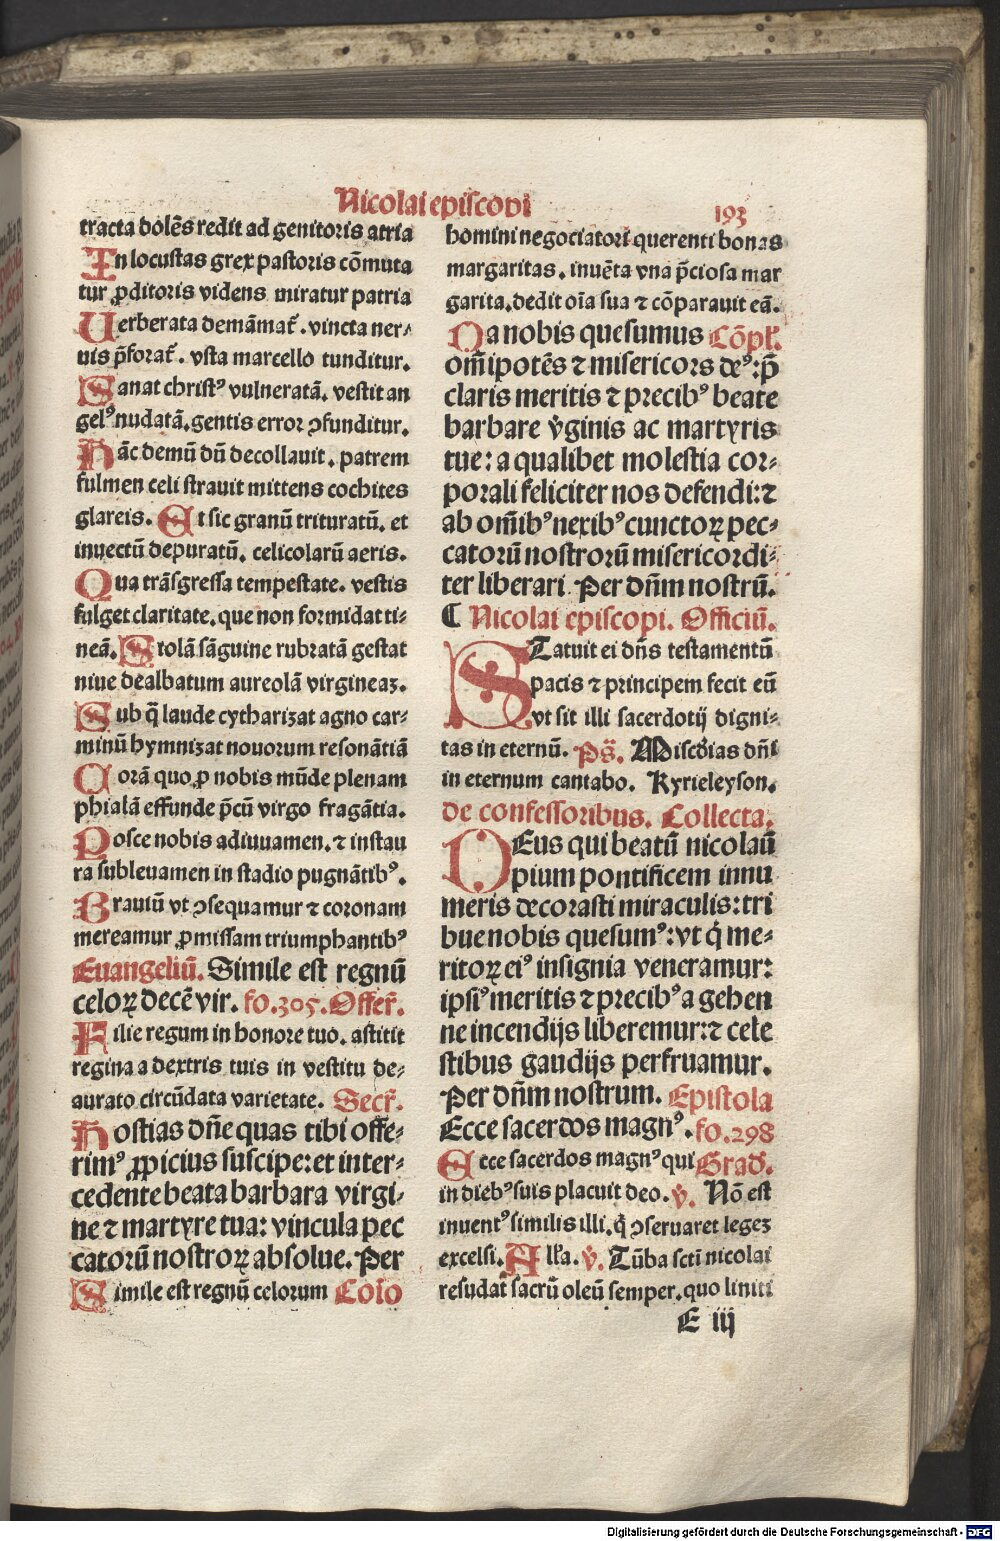 Nicolai episcopi
193
tracta dolēs redit ad genitoris atria
In locustas grex pastoris cōmuta
tur ꝓditoris videns miratur patria
Uerberata demāmat᷑. vincta ner⸗
uis ꝑforat᷑. vsta marcello tunditur.
Sanat christꝰ vulneratā. vestit an
gelꝰ nudatā. gentis error ꝯfunditur.
Hāc demū dū decollauit. patrem
fulmen celi strauit mittens cochites
glareis. Et sic granū trituratū. et
inuectū depuratū. celicolarū aeris.
Qua trāsgressa tempestate. vestis
fulget claritate. que non formidat ti⸗
neā. Stolā sāguine rubratā gestat
niue dealbatum aureolā virgineaꝫ.
Sub q̄ laude cytharizat agno car⸗
minū hymnizat nouorum resonātiā
Corā quo ꝓ nobis mūde plenam
phialā effunde p̄cū virgo fragātia.
Posce nobis adiuuamen. ⁊ instau
ra subleuamen in stadio pugnātibꝰ.
Brauiū vt ꝯsequamur ⁊ coronam
mereamur ꝓmissam triumphantibꝰ
Euangeliū. Simile est regnū
celoꝝ decē vir. fo.305. Offer̄.
Filie regum in honore tuo. astitit
regina a dextris tuis in vestitu de⸗
aurato circūdata varietate. Secr̄.
Hostias dn̄e quas tibi offe⸗
rimꝰ ꝓpicius suscipe: et inter⸗
cedente beata barbara virgi⸗
ne ⁊ martyre tua: vincula pec
catorū nostroꝝ absolue. Per
Simile est regnū celorum Cōio
homini negociatori querenti bonas
margaritas. inuēta vna p̄ciosa mar
garita. dedit oīa sua ⁊ cōparauit eā.
Da nobis quesumus Cōpl̄.
om̄ipotēs ⁊ misericors deꝰ: p̄
claris meritis ⁊ precibꝰ beate
barbare v̄ginis ac martyris
tue: a qualibet molestia cor⸗
porali feliciter nos defendi: ⁊
ab om̄ibꝰ nexibꝰ cunctoꝝ pec⸗
catorū nostrorū misericordi⸗
ter liberari. Per dn̄m nostrū.
¶ Nicolai episcopi. Officiū.
STatuit ei dn̄s testamentū
pacis ⁊ principem fecit eū
vt sit illi sacerdotij digni⸗
tas in eternū. Ps̄. Miscd̄ias dn̄i
in eternum cantabo. Kyrieleyson.
de confessoribus. Collecta.
DEus qui beatū nicolaū
pium pontificem innu
meris decorasti miraculis: tri
bue nobis quesumꝰ: vt q̇ me⸗
ritoꝝ eiꝰ insignia veneramur:
ipsiꝰ meritis ⁊ precibꝰ a gehen
ne incendijs liberemur: ⁊ cele
stibus gaudijs perfruamur.
Per dn̄m nostrum. Epistola
Ecce sacerdos magnꝰ. fo.298
Ecce sacerdos magnꝰ qui Grad̄.
in diebꝰ suis placuit deo. v̄. Nō est
inuentꝰ similis illi. q̇ ꝯseruaret legeꝫ
excelsi. All̄a. v̄. Tūba scti nicolai
resudat sacrū oleū semper. quo liniti
E iij
Digitalisierung gefördert durch die Deutsche Forschungsgemeinschaft - DFG